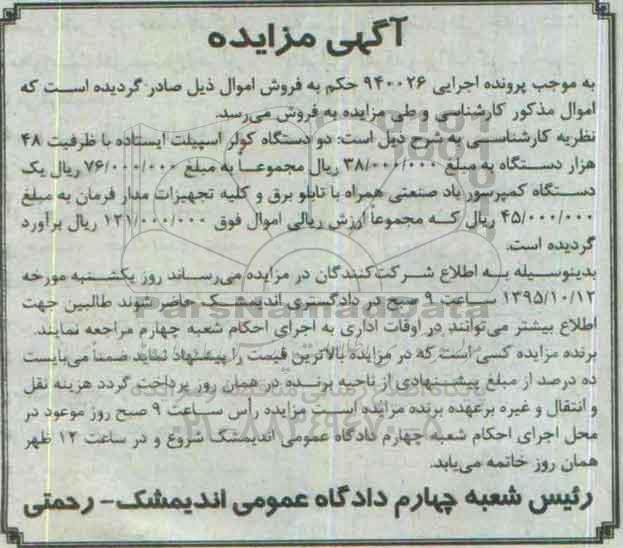 آگهی مزایده
به موجب پرونده اجرایی ۹۴۰۰۲۶ حکم به فروش اموال ذیل صادر گردیده است که
اموال مذکور کارشناسی و طی مزایده به فروش می‌رسد.
نظریه کارشناسی به شرح ذیل است: دو دستگاه کولر اسپیلت ایستاده با ظرفیت ۴۸
هزار دستگاه به مبلغ ۳۸/۰۰۰/۰۰۰ ریال مجموعاً به مبلغ ۷۶/۰۰۰/۰۰۰ ریال یک
دستگاه کمپرسور باد صنعتی همراه با تابلو برق و کلیه تجهیزات مدار فرمان به مبلغ
۴۵/۰۰۰/۰۰۰ ریال که مجموعاً ارزش ریالی اموال فوق ۱۲۱/۰۰۰/۰۰۰ ریال برآورد
گردیده است.
بدینوسیله به اطلاع شرکت‌کنندگان در مزایده می‌رساند روز یکشنبه مورخه
۱۳۹۵/۱۰/۱۲ ساعت ۹ صبح در دادگستری اندیمشک حاضر شوند طالبین جهت
اطلاع بیشتر می‌توانند در اوقات اداری به اجرای احکام شعبه چهارم مراجعه نمایند.
برنده مزایده کسی است که در مزایده بالاترین قیمت را پیشنهاد نماید ضمناً می‌بایست
ده درصد از مبلغ پیشنهادی از ناحیه برنده در همان روز پرداخت گردد هزینه نقل
و انتقال و غیره برعهده برنده مزایده است مزایده رأس ساعت ۹ صبح روز موعود در
محل اجرای احکام شعبه چهارم دادگاه عمومی اندیمشک شروع و در ساعت ۱۲ ظهر
همان روز خاتمه می‌یابد.
رئیس شعبه چهارم دادگاه عمومی اندیمشک- رحمتی
ParsNamadData
۰۲۱-۸۸۳۴۹۶۷۰-۵